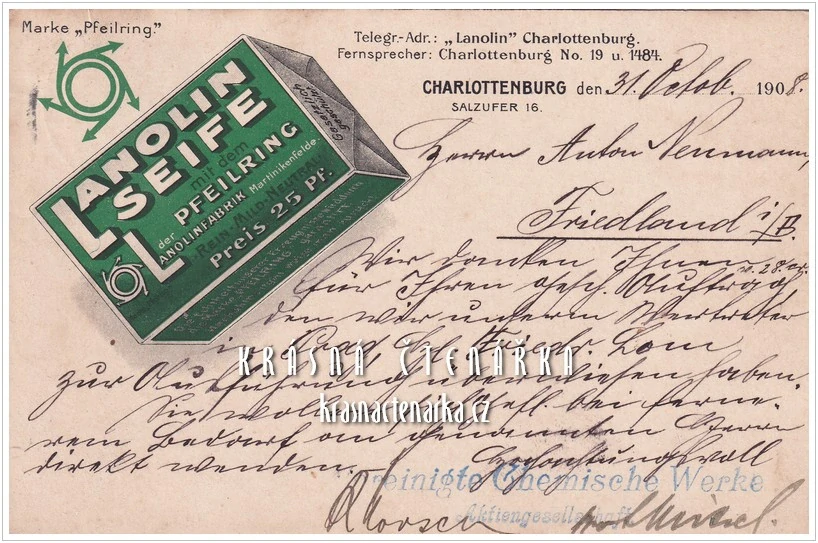 Marke „Pfeilring."
Telegr.-Adr.: „Lanolin" Charlottenburg.
Fernsprecher: Charlottenburg No. 19 u. 1484.
CHARLOTTENBURG den 31. Octob. 1908.
SALZUFER 16.
LANOLIN
SEIFE
mit dem
PFEILRING
der
LANOLINFABRIK Martinikenfelde.
REIN-MILD-NEUTRAL
Preis 25 Pf.
Gesetzlich
geschützt.
Herrn Anton Neumann,
Friedland i/B.
Wir danken Ihnen
für Ihren gesch. Auftrag v. 28. cr.
den wir unserem Vertreter
in Friedr. Lom
zur Ausführung überwiesen haben.
Sie wollen sich gefl. bei ferne-
rem Bedarf an genannten Herrn
direkt wenden.
Hochachtungsvoll
Vereinigte Chemische Werke
Aktiengesellschaft
KRÁSNÁ ČTENÁŘKA
krasnactenarka.cz